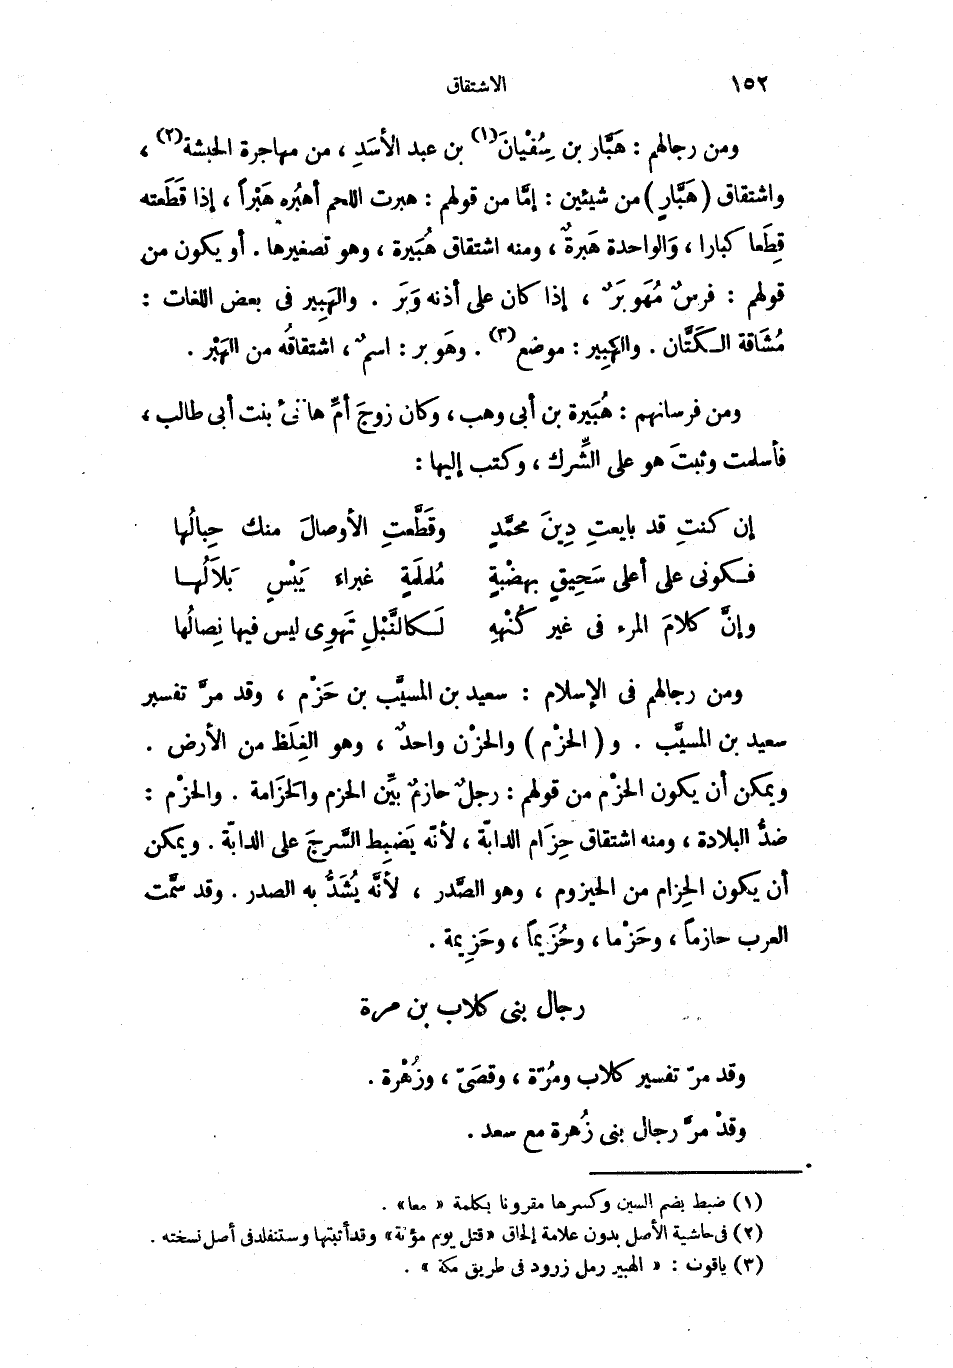 ١٥٢ الاشتقاق
ومن رجالهم : هَبَّار بن سِفُيْانَ(١) بن عبد الأسَدِ ، من مهاجرة الحبشة(٢) ،
واشتقاق ( هَبَّارٍ ) من شيئين : إمَّا من قولهم : هبرت اللحم أهبُره هَبْراً ، إذا قَطَعته
قِطَعا كبارا ، والواحدة هَبرةٌ ، ومنه اشتقاق هُبَيرة ، وهو تصغيرها . أو يكون من
قولهم : فرسٌ مُهَوبَرٌ ، إذا كان على أذنه وَبَر . والهَبِير فى بعض اللغات :
مُشَاقة الكَتَّان . والهبِير : موضع(٣) . وهَوبر : اسمٌ ، اشتقاقُه من الهَبْر .
ومن فرسانهم : هُبَيرة بن أبى وهب ، وكان زوجَ أمِّ هانئ بنت أبى طالب ،
فأسلمت وثبتَ هو على الشِّرك ، وكتب إليها :
إن كنتِ قد بايعتِ دِينَ محمَّدٍ وقَطَّعتِ الأوصالَ منك حِبالُها
فكونى على أعلى سَحِيقٍ بهضْبةٍ مُلملَمةٍ غبراء يَبْسٍ بَلاَلُها
وإنَّ كلامَ المرء فى غير كُنْههِ لَكالنَّبْلِ تَهوِى ليس فيها نِصالُها
ومن رجالهم فى الإسلام : سعيد بن المسيَّب بن حَزْم ، وقد مرَّ تفسير
سعيد بن المسيَّب . و ( الحزْم ) والحزْن واحدٌ ، وهو الغِلَظ من الأرض .
ويمكن أن يكون الحزْم من قولهم : رجلٌ حازمٌ بيِّن الحزم والحَزَامة . والحزْم :
ضدُّ البلادة ، ومنه اشتقاق حِزَام الدابّة ، لأنّه يَضبِط السَّرجَ على الدابّة . ويمكن
أن يكون الحِزام من الحيزوم ، وهو الصَّدر ، لأنَّه يُشَدُّ به الصدر . وقد سمَّت
العرب حازماً ، وحَزْما ، وحُزَيماً ، وحَزِيمة .
رجال بنى كلاب بن مرة
وقد مرّ تفسير كلاب ومُرّة ، وقصَىّ ، وزُهْرة .
وقدْ مرَّ رجال بنى زُهرة مع سعد .
(١) ضبط بضم السين وكسرها مقرونا بكلمة « معا » .
(٢) فى حاشية الأصل بدون علامة إلحاق « قتل يوم مؤتة » وقد أثبتها وستنفلد فى أصل نسخته .
(٣) ياقوت : « الهبير رمل زرود فى طريق مكة » .